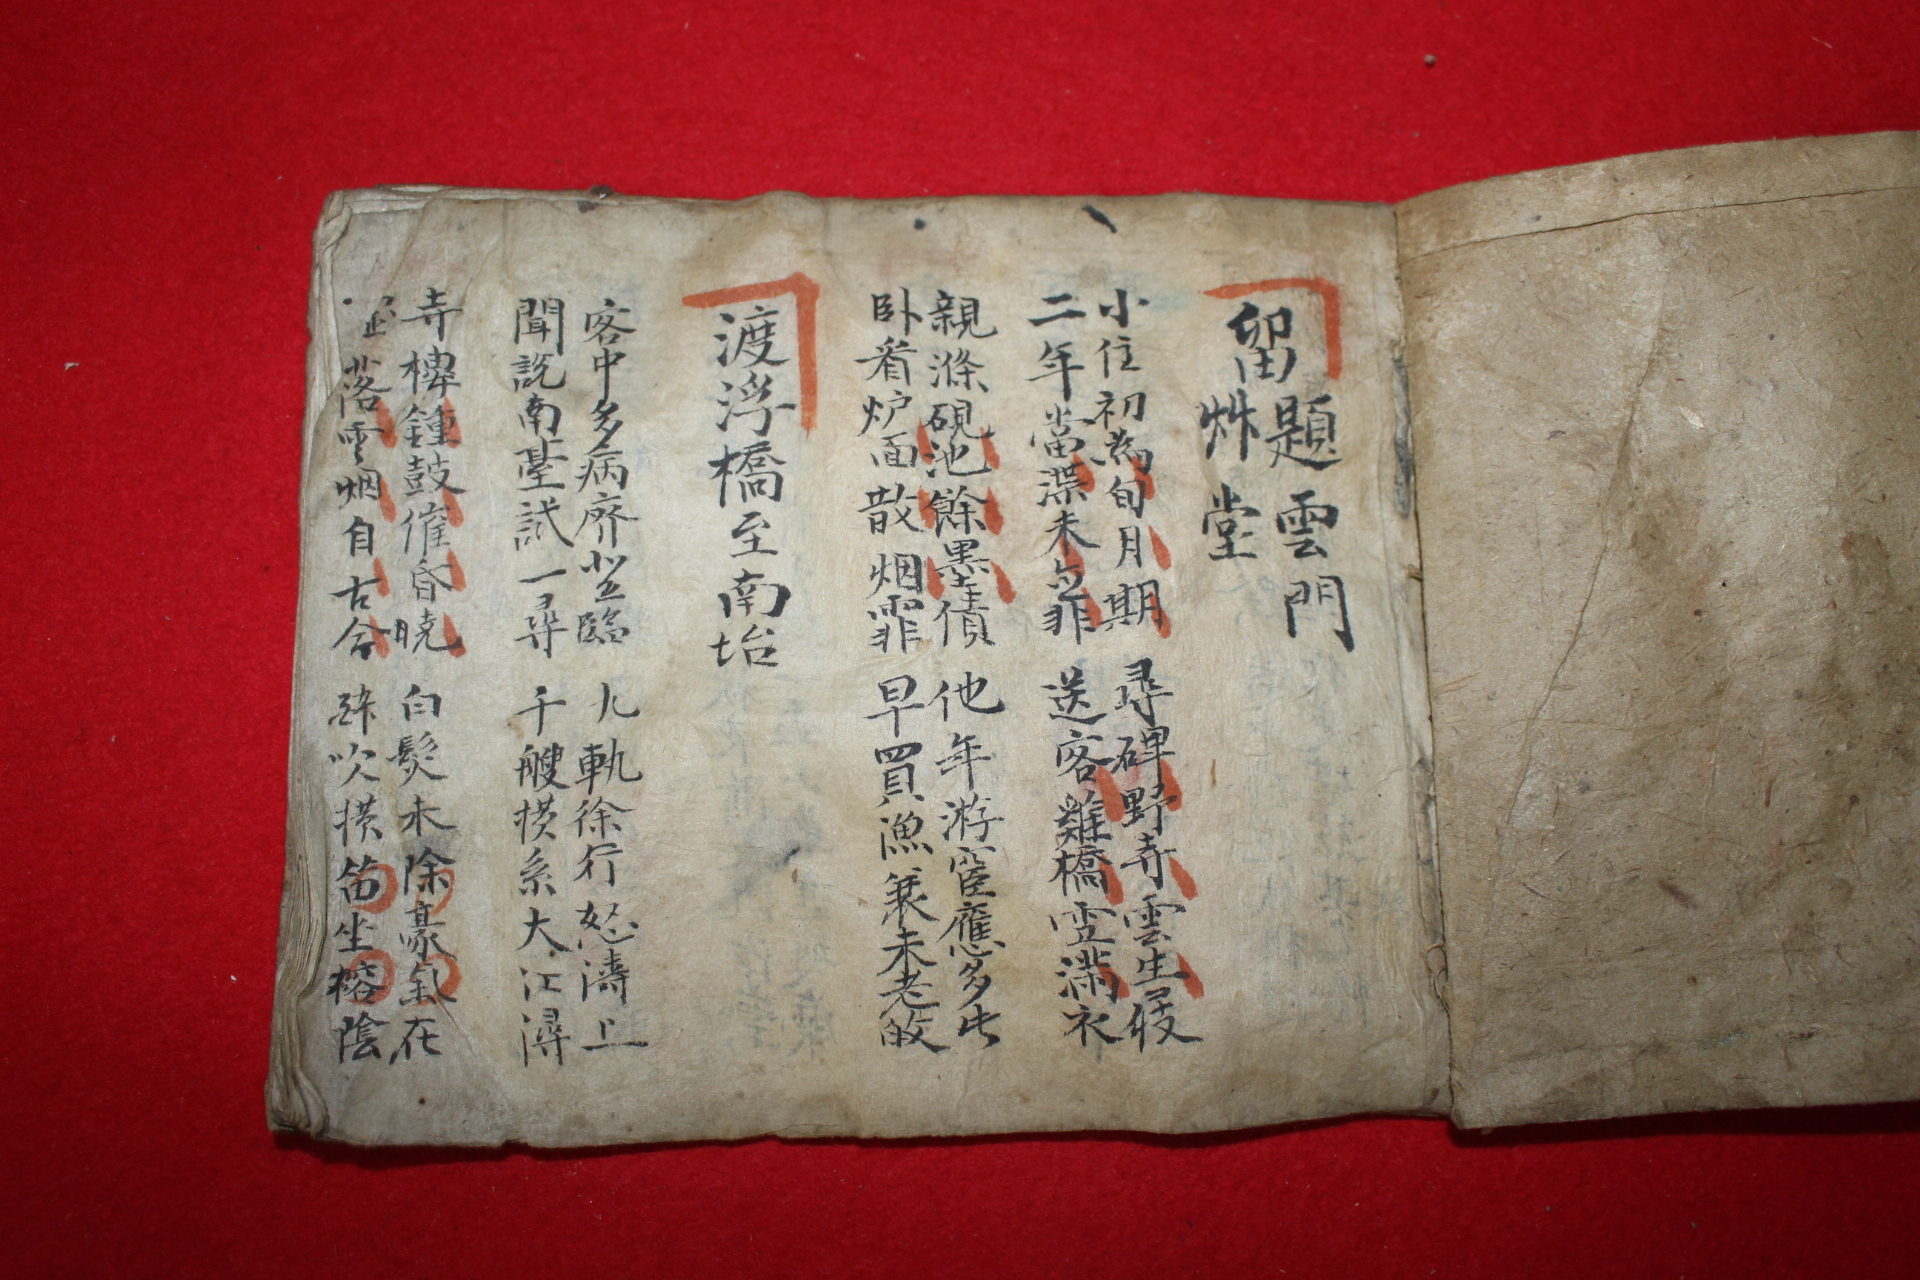 畄題雲門
艸堂
小住初為旬月期 尋碑野寺雲生屐
二年當滞未非 送客雞橋雪滿衣
親滌硯池餘墨債 他年游宦應多此
卧看炉面散烟霏 早買漁簑未老皈
渡浮橋至南坮
客中多病廃登臨 九軌徐行怒濤上
聞説南臺試一尋 千艘横系大江潯
寺樓鍾鼓催昏曉 白髮未除豪氣在
落雲烟自古今 酔吹横笛坐榕陰